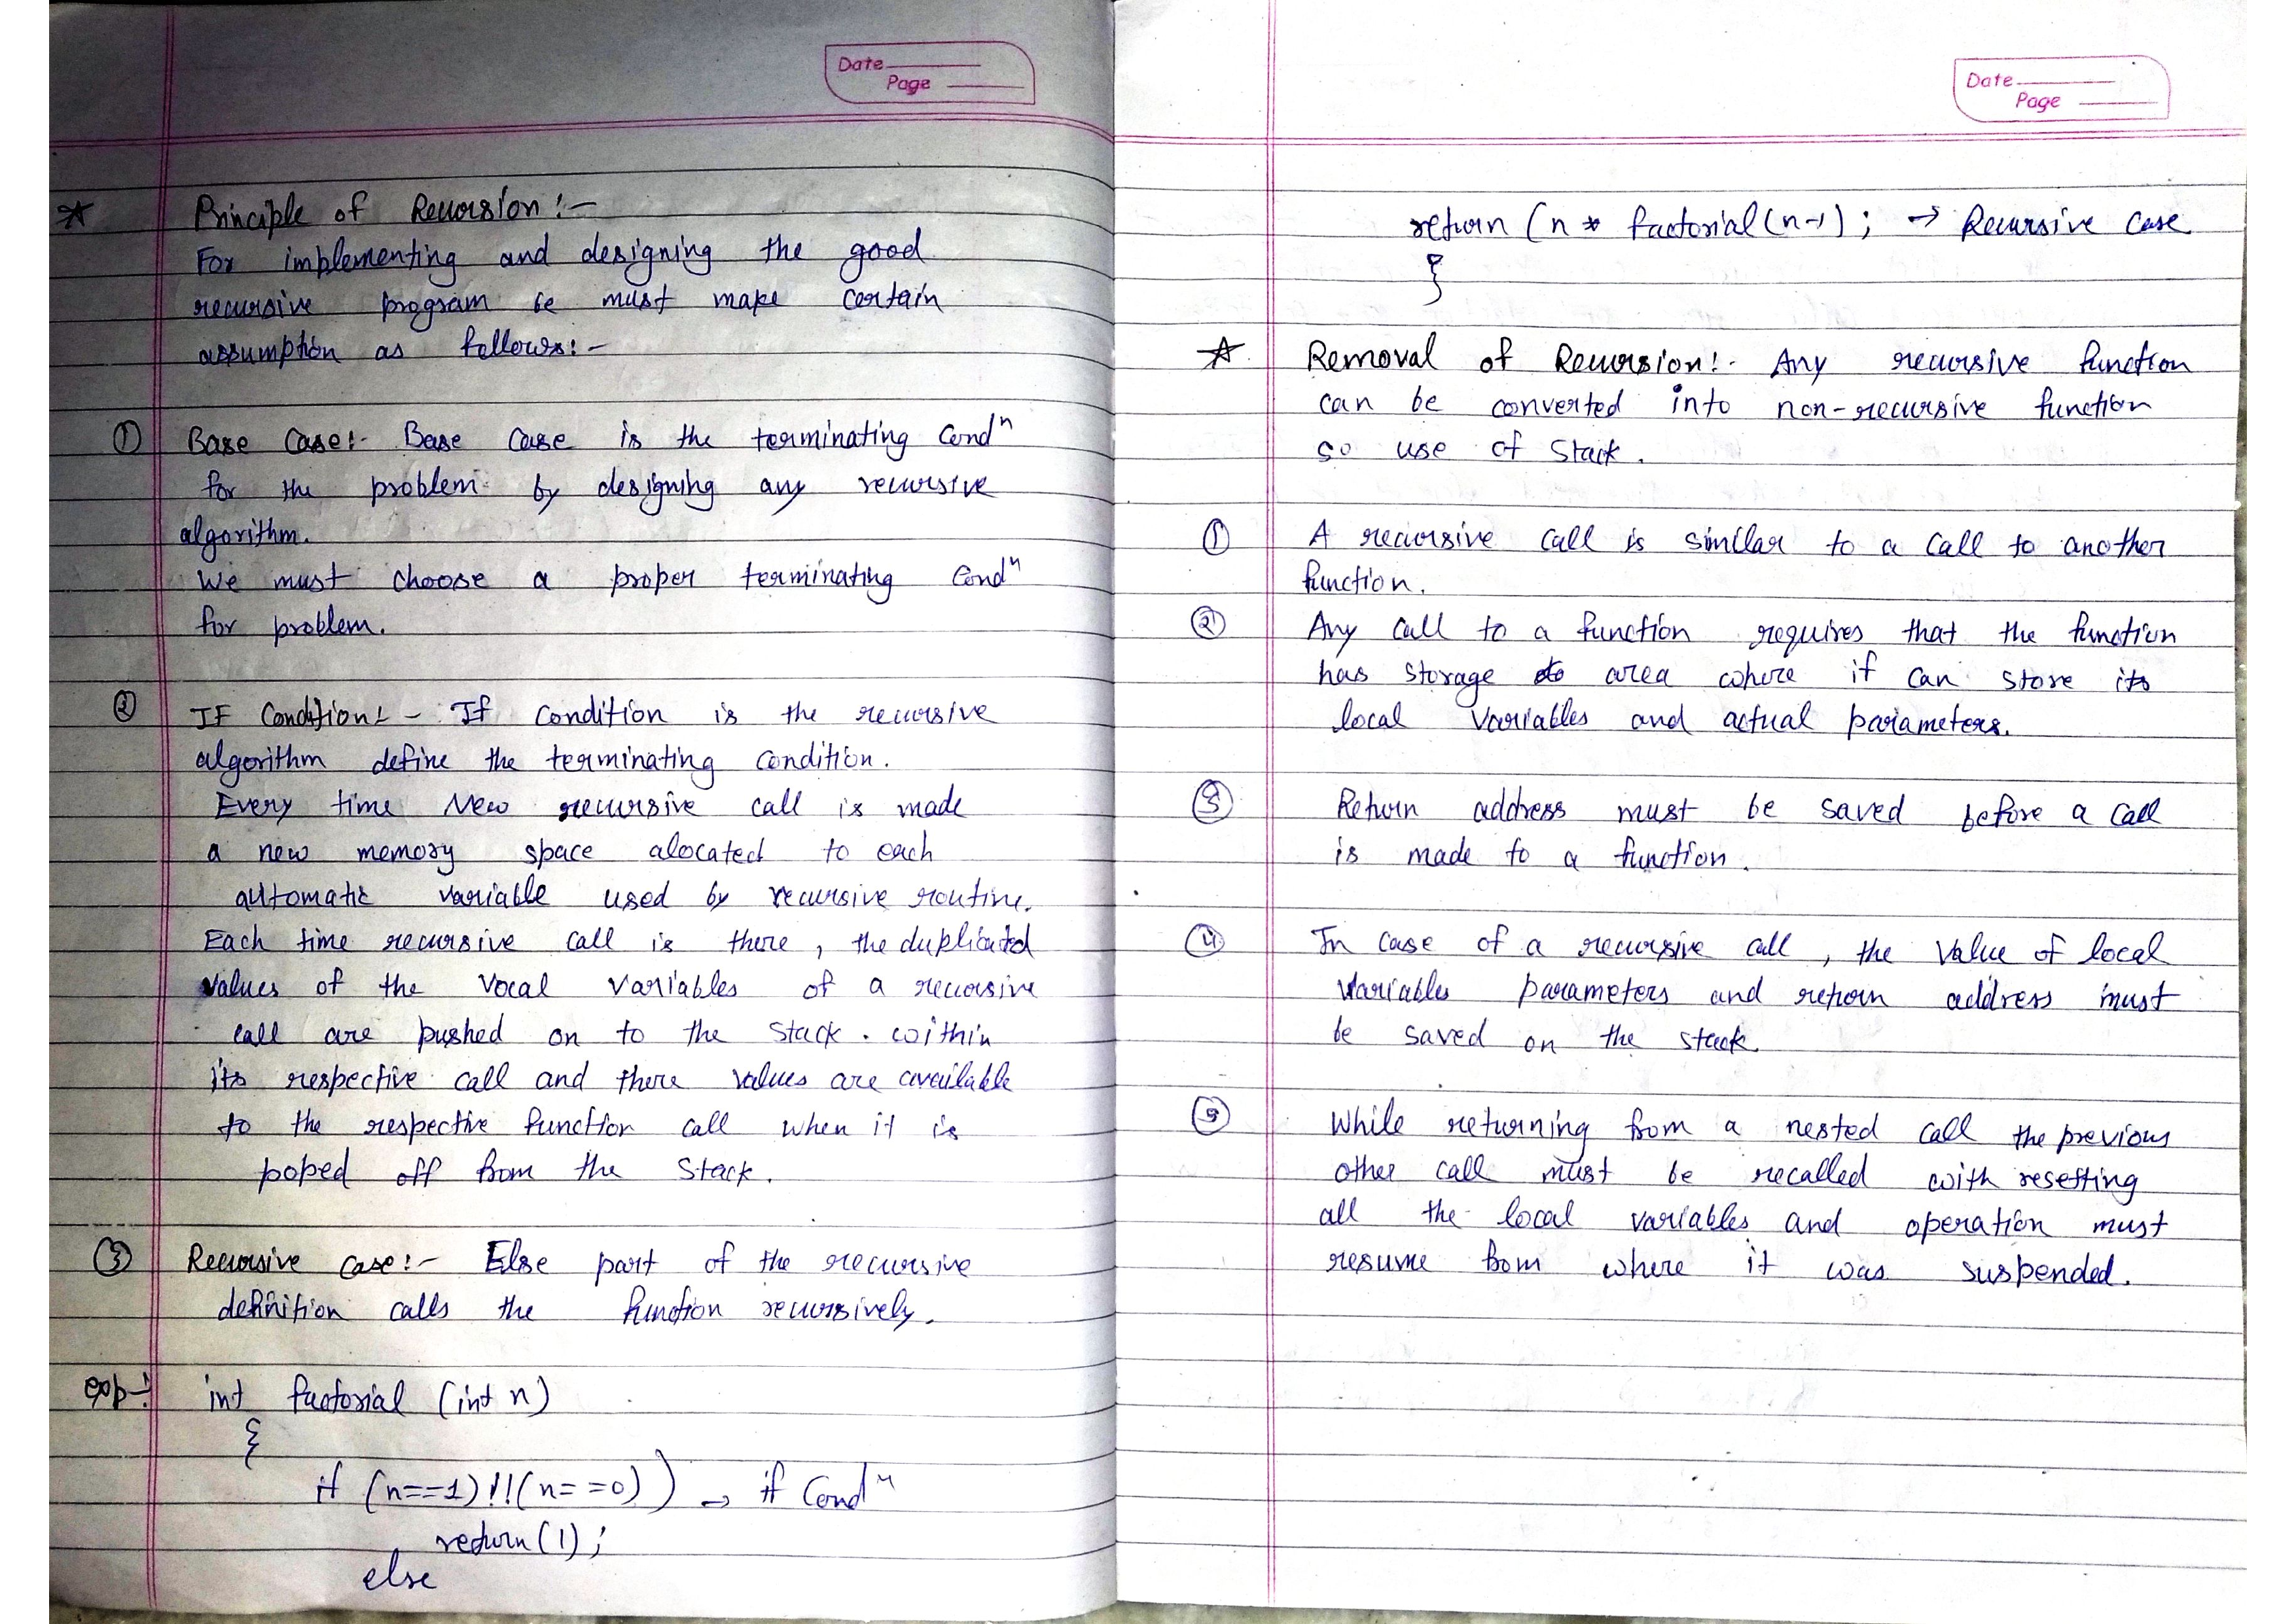 Date
Page
Principle of Recursion :-
For implementing and designing the good
recursive program be must make certain
assumption as follows :-
① Base Case :- Base Case is the terminating Condⁿ
for the problem by designing any recursive
algorithm.
We must choose a proper terminating Condⁿ
for problem.
② IF Condition :- If condition is the recursive
algorithm define the terminating condition.
Every time New recursive call is made
a new memory space alocated to each
automatic variable used by recursive routine.
Each time recursive call is there , the duplicated
values of the vocal variables of a recursive
call are pushed on to the stack . within
its respective call and there values are available
to the respective function call when it is
poped off from the stack.
③ Recursive case :- Else part of the recursive
definition calls the function recursively.
exp-: int factorial (int n)
{
if (n==1) !!(n==0)) → if Condⁿ
return(1);
else
Date
Page
return (n * factorial(n-1); → Recursive case
}
Removal of Recursion :- Any recursive function
can be converted into non-recursive function
so use of Stack.
① A recursive call is similar to a call to another
function.
② Any call to a function requires that the function
has storage area where if can store its
local variables and actual parameters.
③ Return address must be saved before a call
is made to a function.
④ In case of a recursive call , the value of local
variables parameters and return address must
be saved on the stack.
⑤ While returning from a nested call the previous
other call must be recalled with resetting
all the local variables and operation must
resume from where it was suspended.